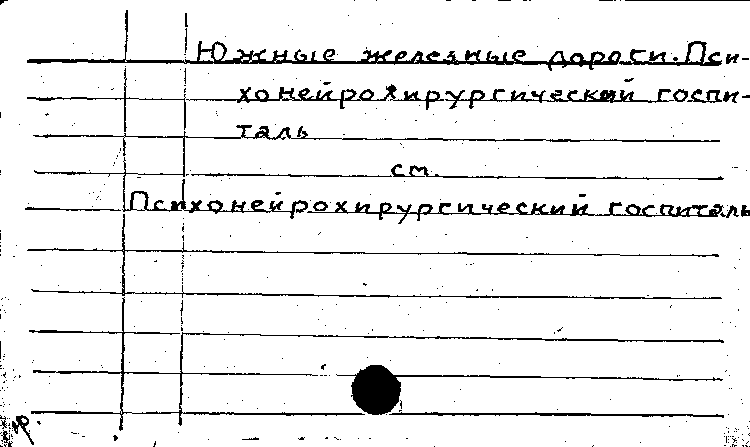 Южные железные дороги. Пси-
хонейрохирургический госпи-
таль
см.
Психонейрохирургический госпиталь